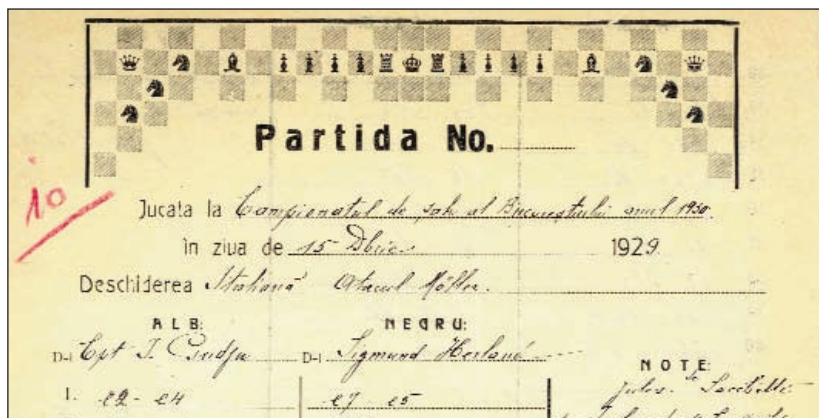 Partida No.
10
Jucata la Campionatul de șah al Bucureștiului anul 1930.
în ziua de 15 Dbrie. 1929
Deschiderea Italiană Atacul Möller.
ALB: NEGRU:
D-l Cpt I. Gudju D-l Sigmund Herland
NOTE:
1. e2-e4 e7-e5 Jules de Soubille